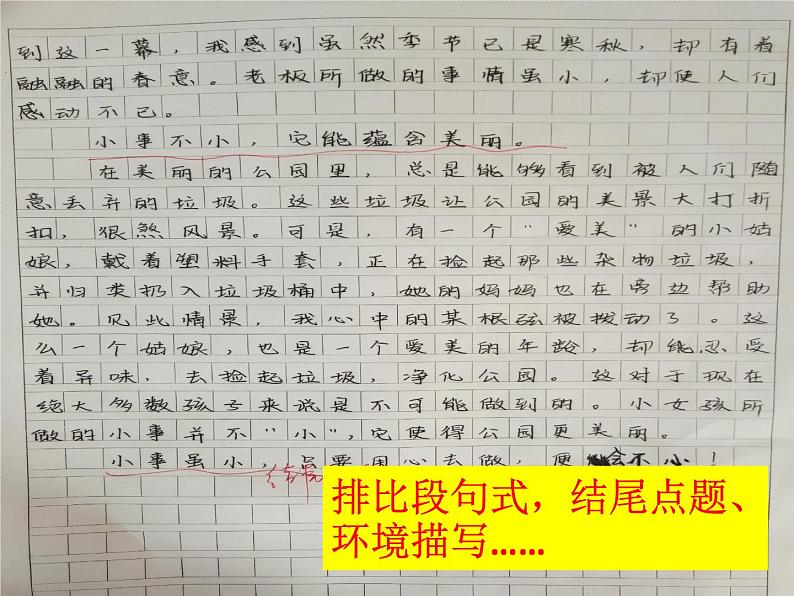 到这一幕，我感到虽然季节已是寒秋，却有着
融融的春意。老板所做的事情虽小，却使人们
感动不已。
小事不小，它能蕴含美丽。
在美丽的公园里，总是能够看到被人们随
意丢弃的垃圾。这些垃圾让公园的美景大打折
扣，狠煞风景。可是，有一个“爱美”的小姑
娘，戴着塑料手套，正在捡起那些杂物垃圾，
并归类扔入垃圾桶中，她的妈妈也在旁边帮助
她。见此情景，我心中的某根弦被拨动了。这
么一个姑娘，也是一个爱美的年龄，却能忍受
着异味，去捡起垃圾，净化公园。这对于现在
绝大多数孩子来说是不可能做到的。小女孩所
做的小事并不“小”，它使得公园更美丽。
小事虽小，只要用心去做，便会不小！
排比段句式，结尾点题、
环境描写……